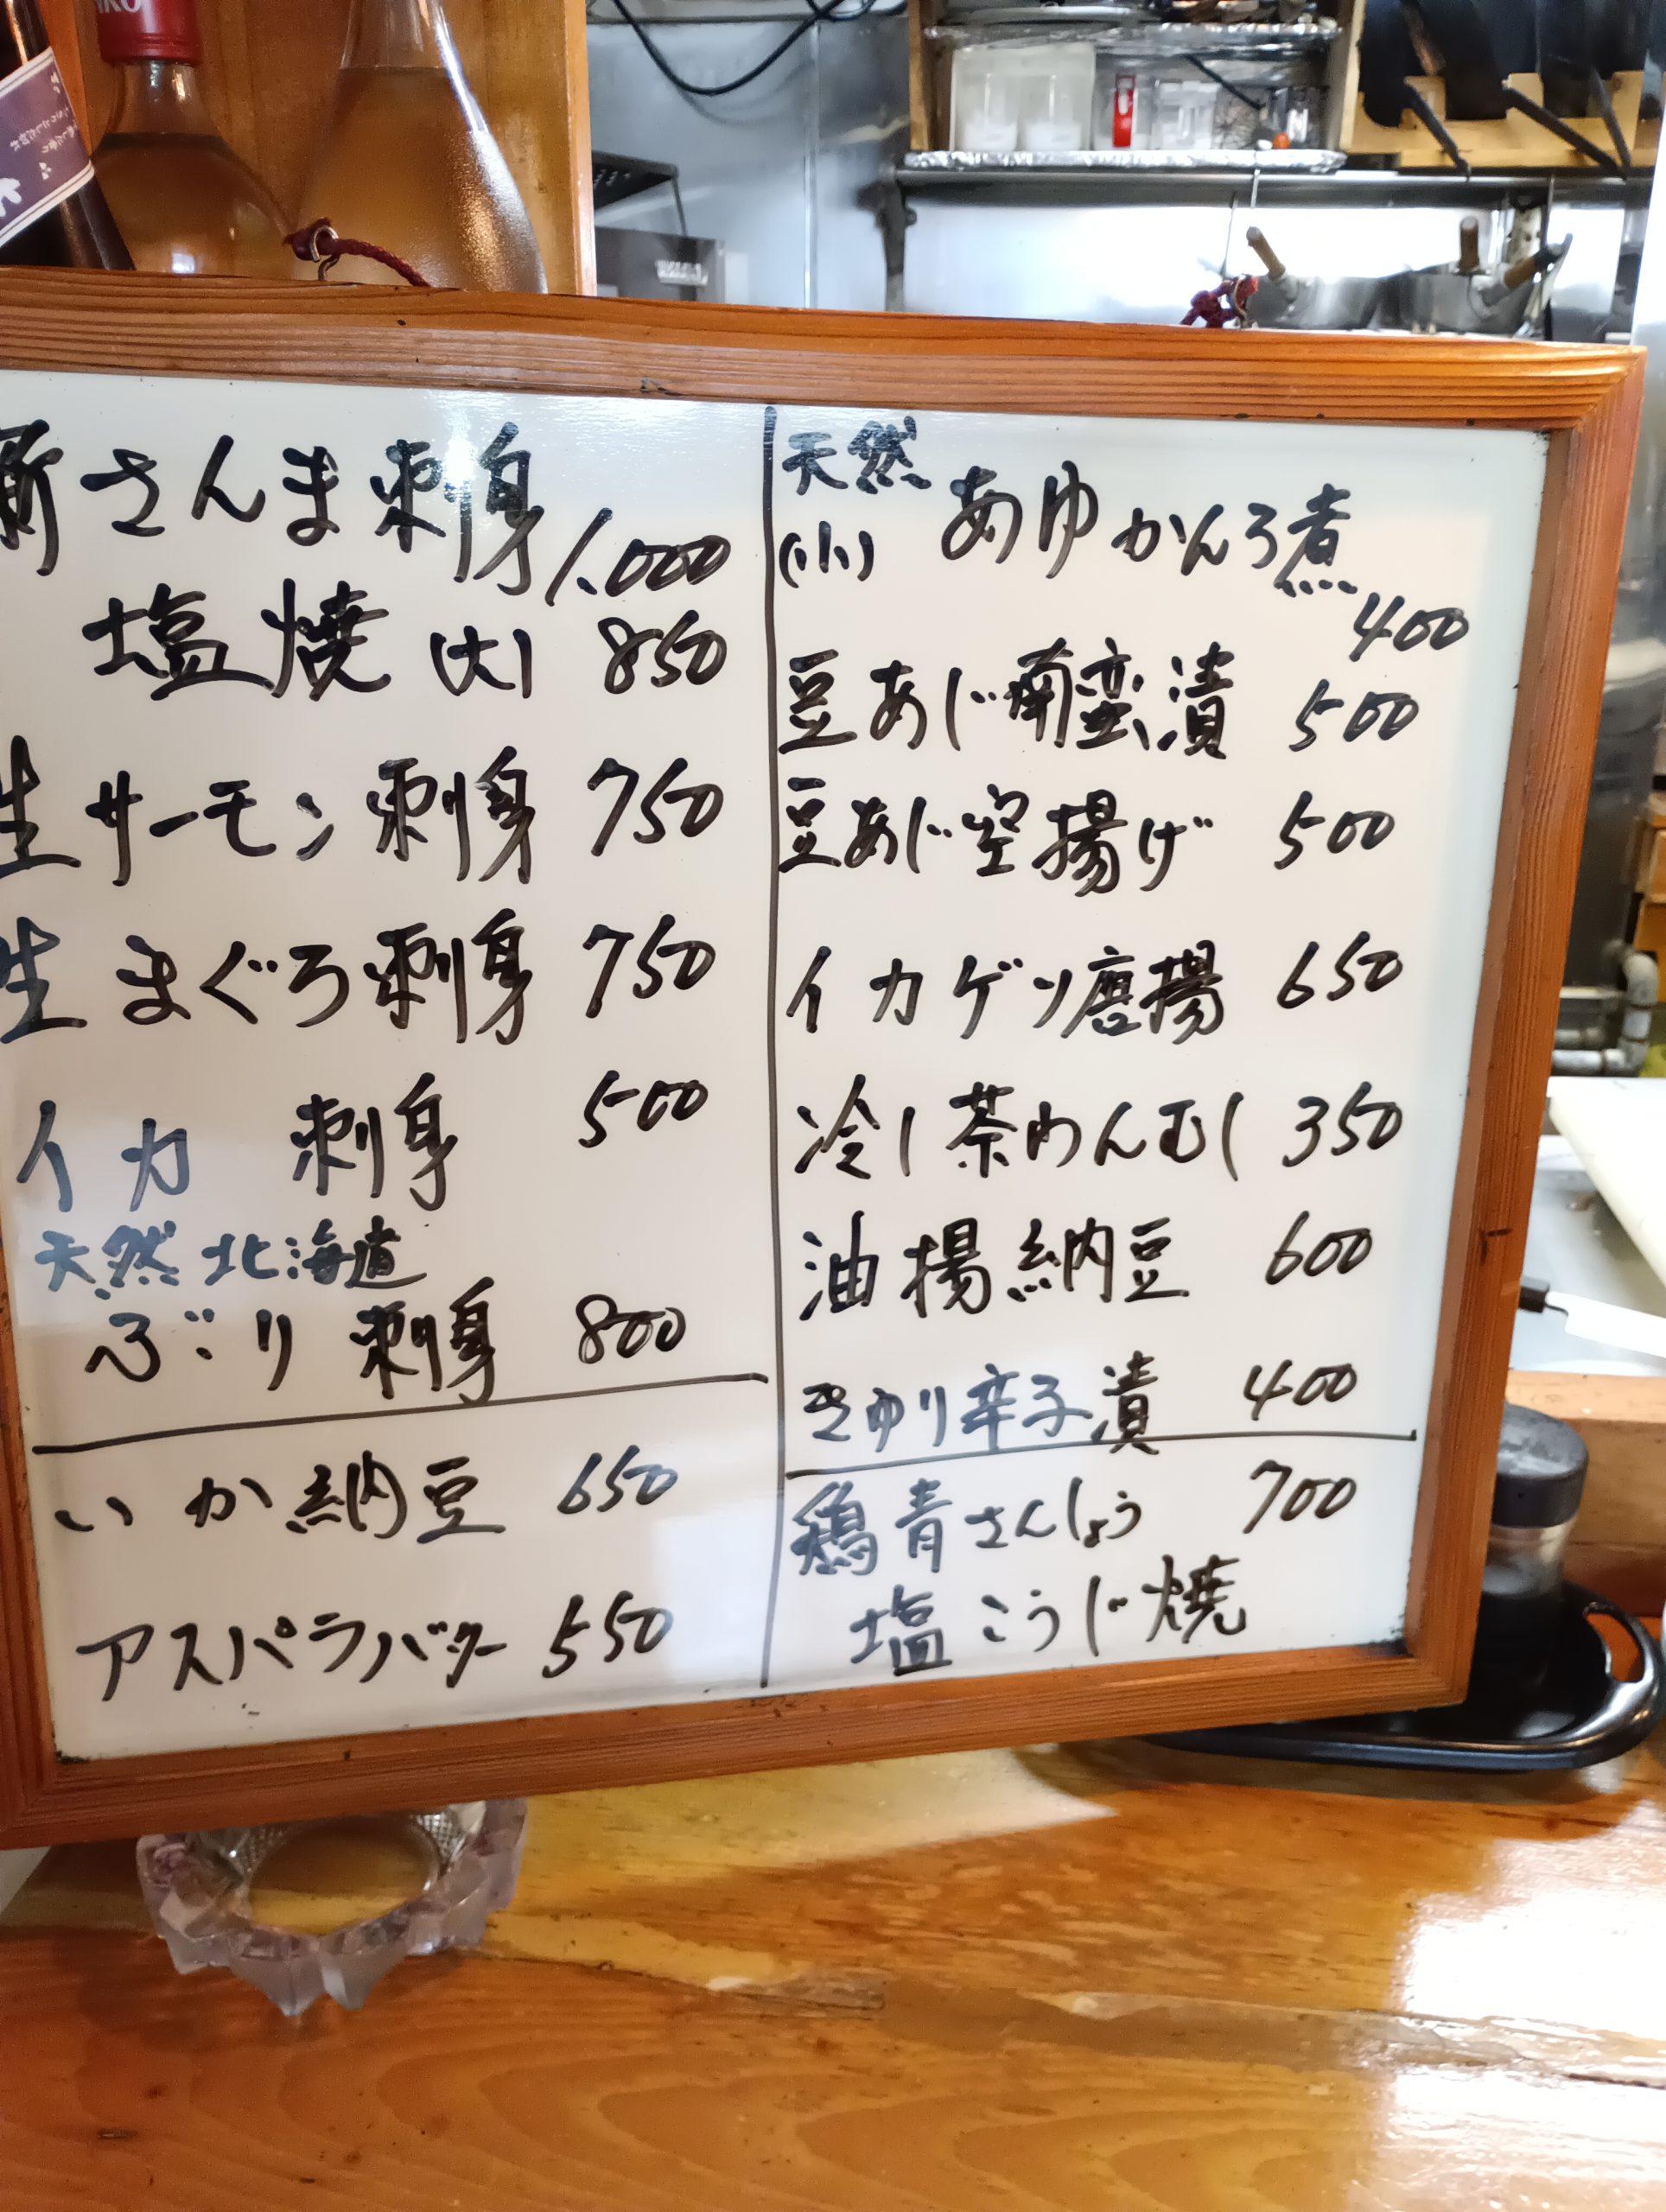 新さんま刺身 1.000
塩焼(大) 850
生サーモン刺身 750
生まぐろ刺身 750
イカ 刺身 500
天然北海道
ぶり刺身 800
いか納豆 650
アスパラバター 550
天然
(小) あゆかんろ煮
400
豆あじ南蛮漬 500
豆あじ空揚げ 500
イカゲソ唐揚 650
冷し茶わんむし 350
油揚納豆 600
きゅうり辛子漬 400
鶏青さんしょう 700
塩こうじ焼